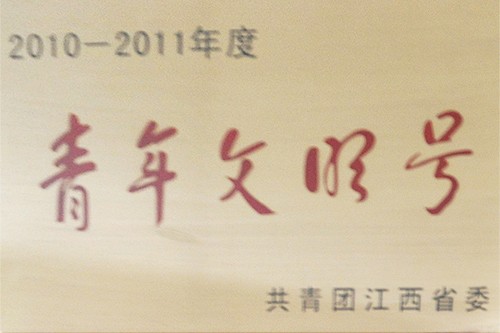 2010-2011年度
青年文明号
共青团江西省委